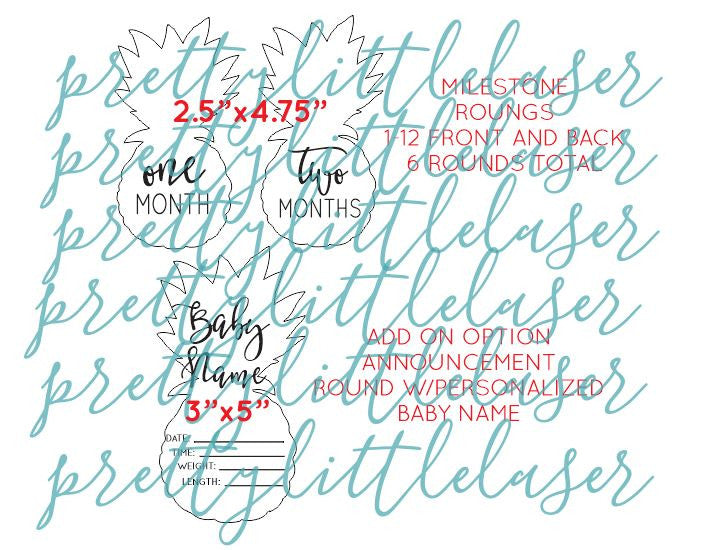 prettylittlelaser
2.5"x4.75"
MILESTONE
ROUNGS
1-12 FRONT AND BACK
6 ROUNDS TOTAL
prettylittlelaser
one
MONTH
two
MONTHS
prettylittlelaser
prettylittlelaser
Baby
Name
3"x5"
ADD ON OPTION
ANNOUNCEMENT
ROUND W/PERSONALIZED
BABY NAME
prettylittlelaser
DATE:
TIME:
WEIGHT:
LENGTH:
prettylittlelaser